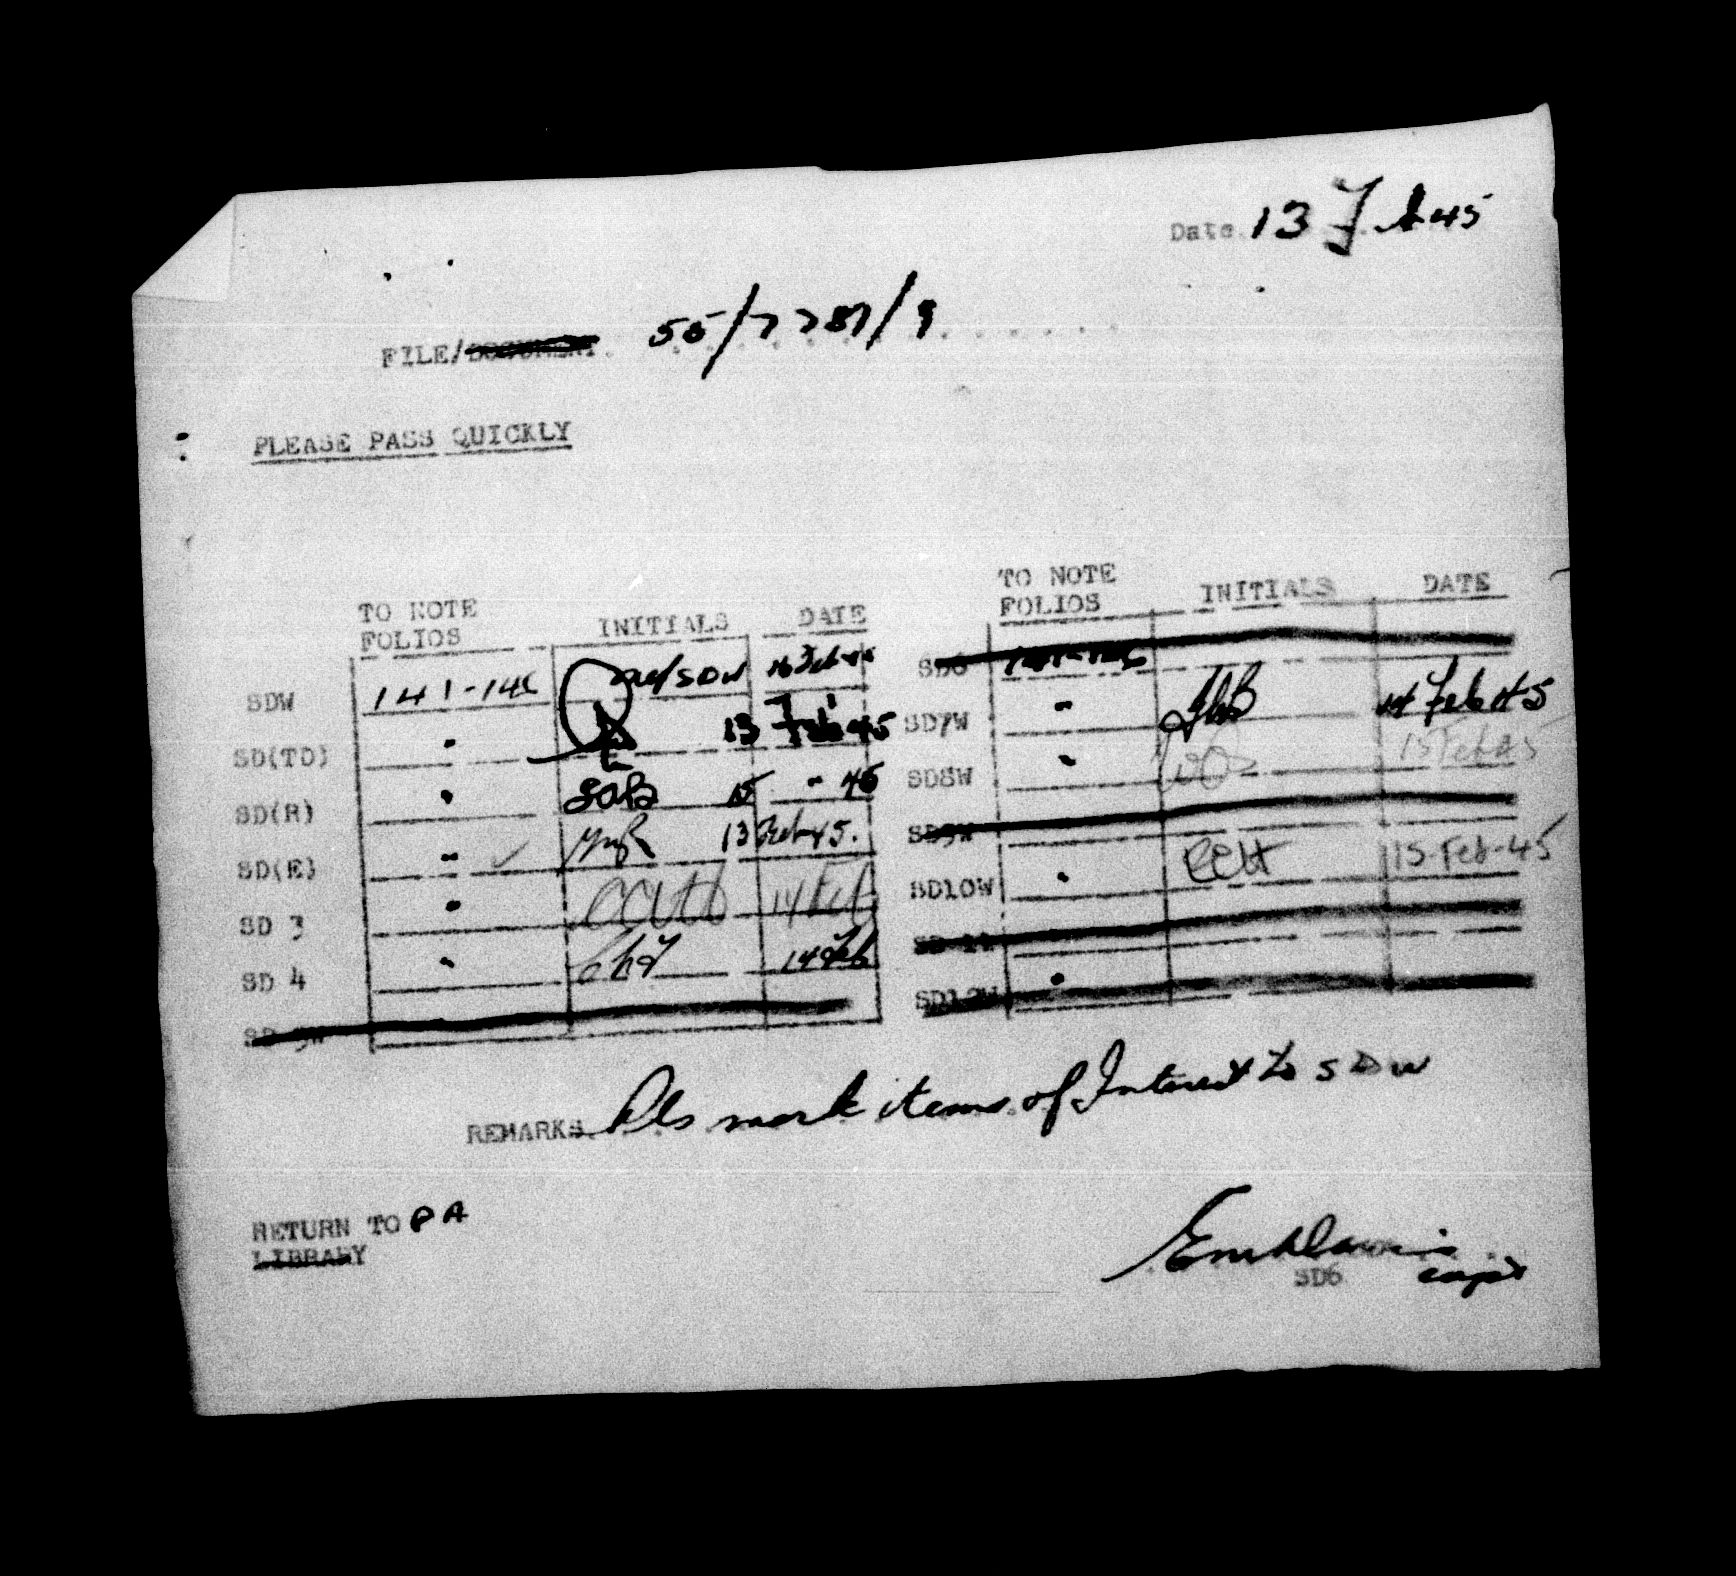 Date 13 Feb 45
FILE/DOCUMENT. 55/7787/9
PLEASE PASS QUICKLY
TO NOTE FOLIOS INITIALS DATE
SDW 141-146 SDW 16 Feb
SD(TD) " 13 Feb 45
SD(R) " 15 " 45
SD(E) " 13 Feb 45.
SD 3 " 14 Feb
SD 4 " 14 Feb
SD 5W
TO NOTE FOLIOS INITIALS DATE
SD6 141-146
SD7W " 14 Feb 45
SD8W " 15 Feb 45
SD9W
SD10W " 15-Feb-45
SD 11
SD12W "
REMARKS. Pls mark items of Interest to SDW
RETURN TO PA
LIBRARY
Capt
SD6